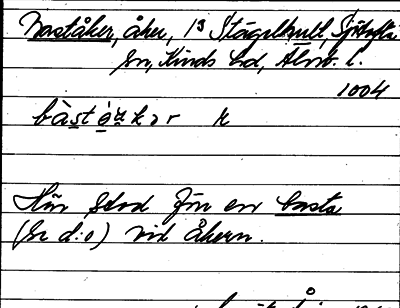 Baståker, åker, 1³ Stägelhult, Sjötofta
sn, Kinds hd, Älvsb. l.
1004
Här stod förr en basta
(se d:o) vid åkern.